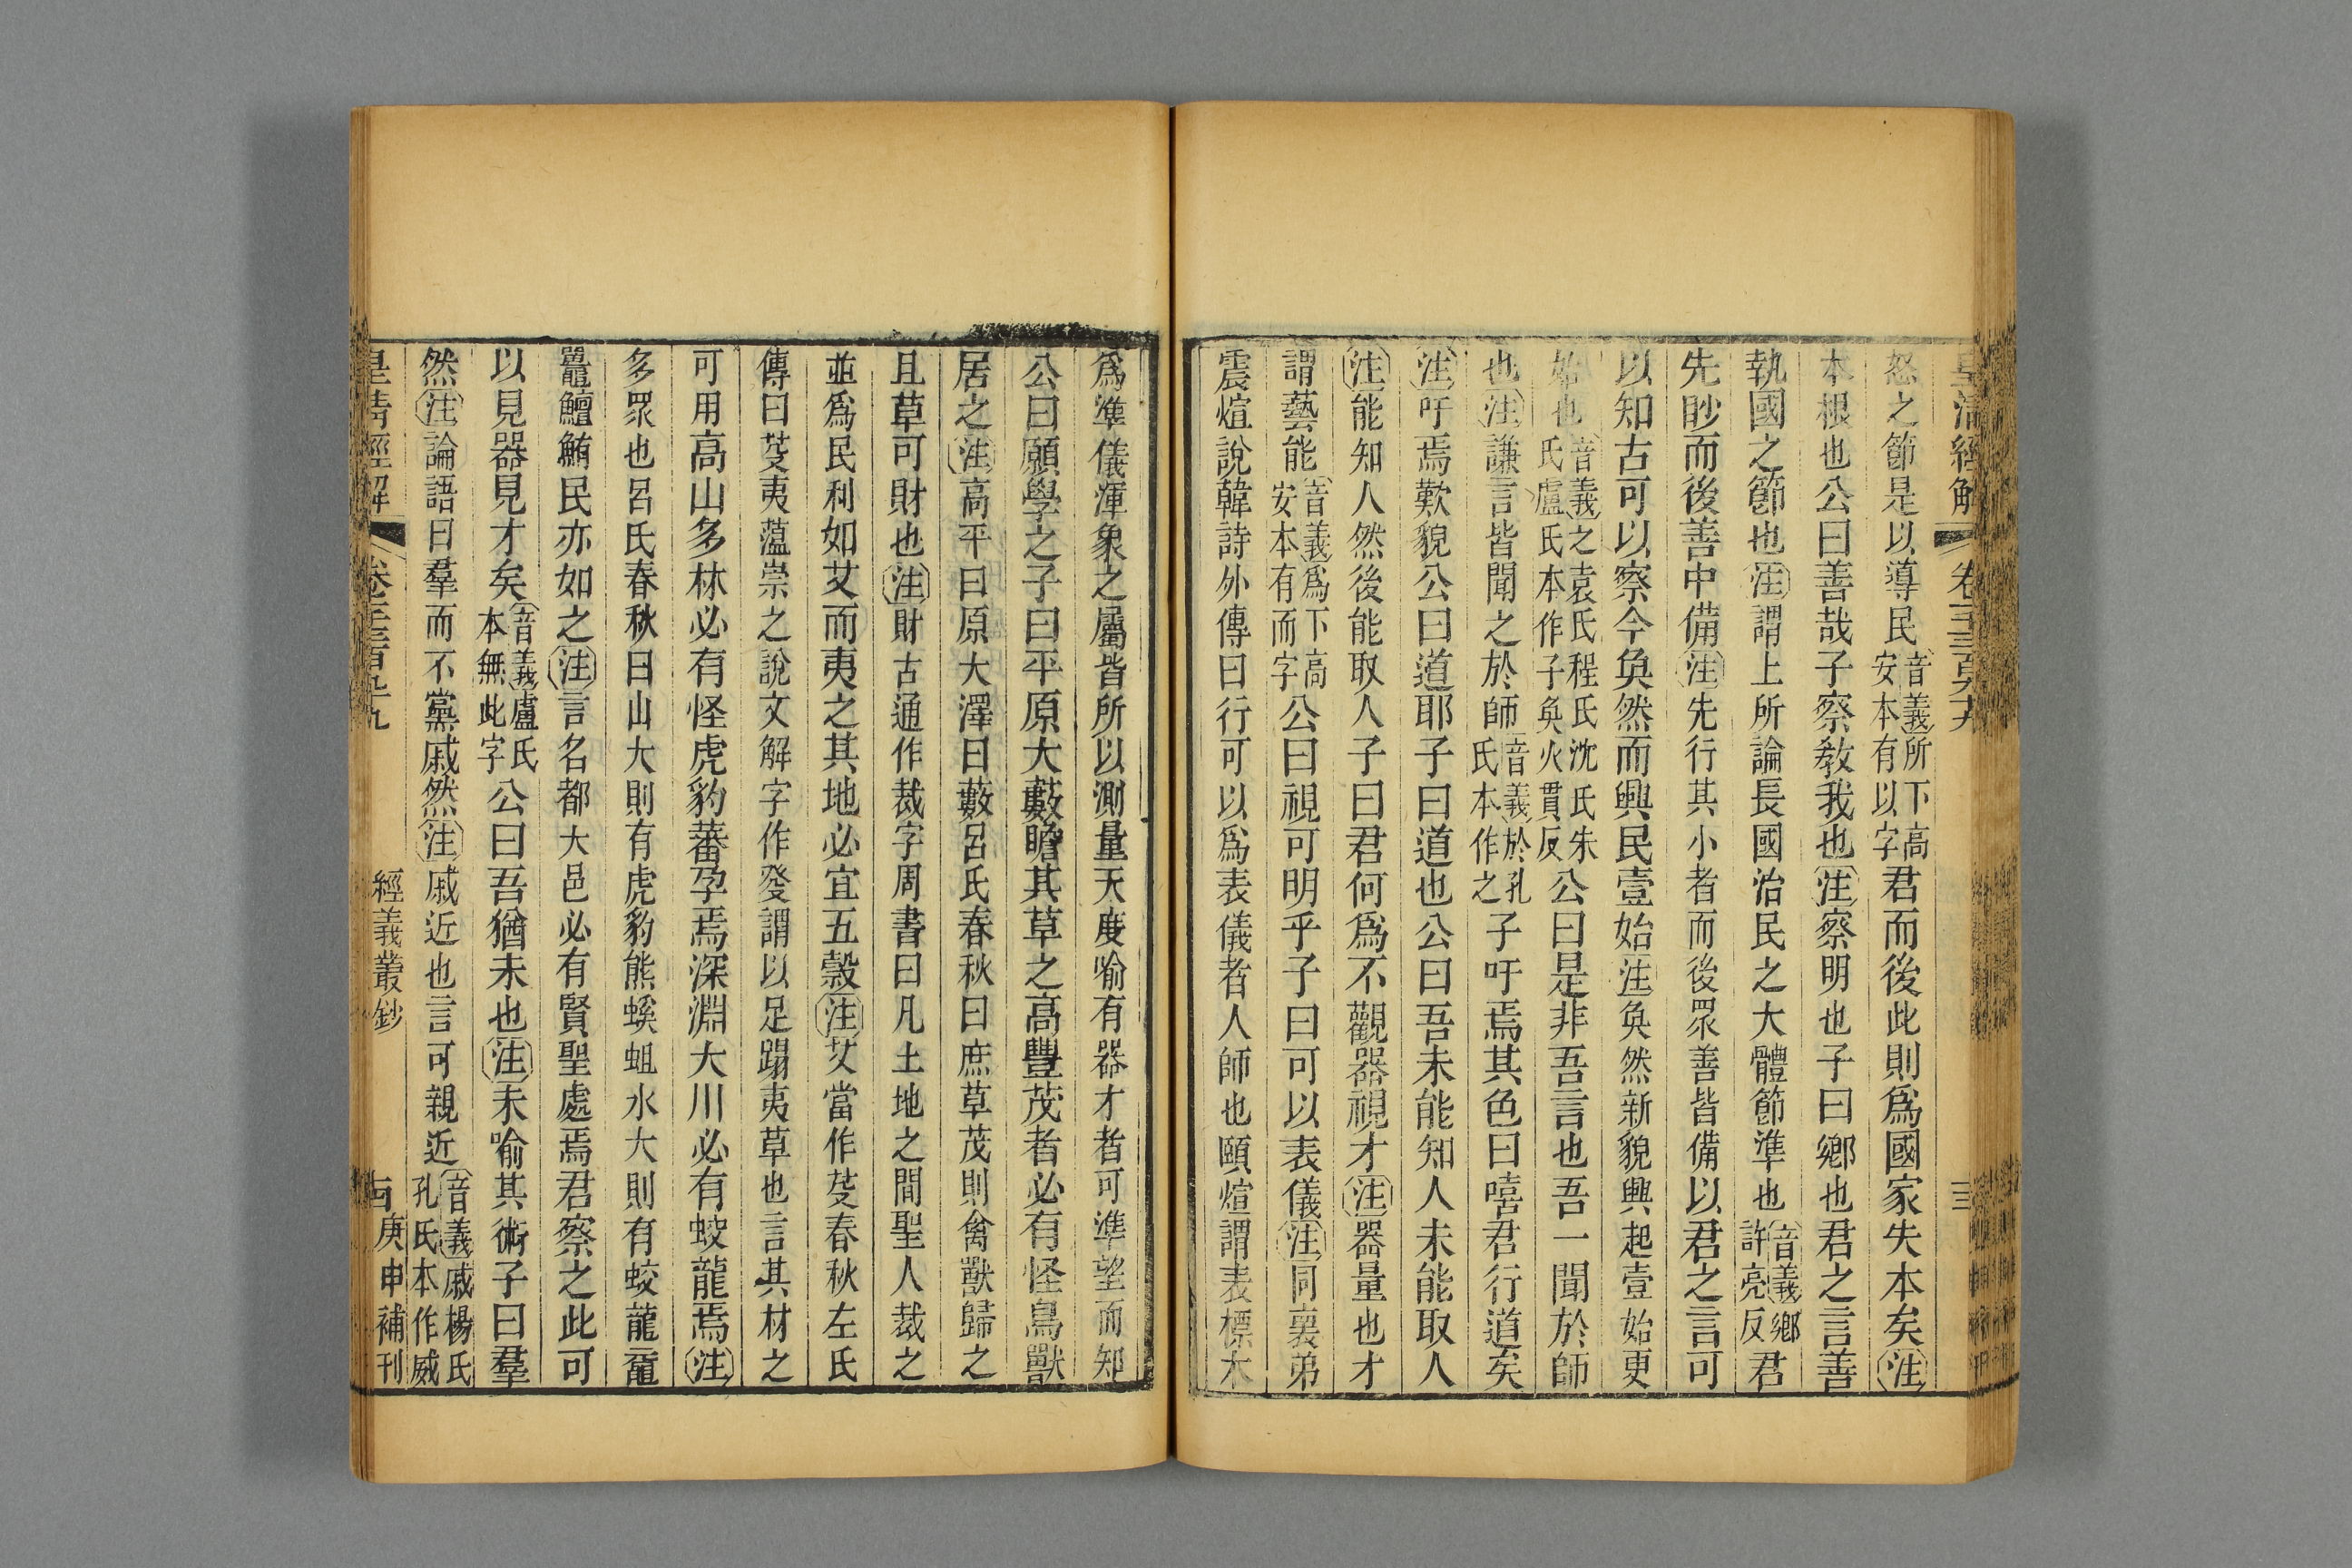 皇清經解
三
怒之節是以導民音義所下高安本有以字君而後此則爲國家失本矣注
本根也公曰善哉子察敎我也注察明也子曰鄉也君之言善
執國之節也注謂上所論長國治民之大體節準也音義鄉許亮反君
先眇而後善中備注先行其小者而後眾善皆備以君之言可
以知古可以察今奐然而興民壹始注奐然新貌興起壹始更
始也音義之袁氏程氏沈氏朱氏盧氏本作子奐火貫反公曰是非吾言也吾一聞於師
也注謙言皆聞之於師音義於孔氏本作之子吁焉其色曰嘻君行道矣
注吁焉歎貌公曰道耶子曰道也公曰吾未能知人未能取人
注能知人然後能取人子曰君何爲不觀器視才注器量也才
謂藝能音義爲下高安本有而字公曰視可明乎子曰可以表儀注同裏弟
震煊說韓詩外傳曰行可以爲表儀者人師也頤煊謂表標木
爲準儀渾象之屬皆所以測量天度喻有器才者可準望而知
公曰願學之子曰平原大藪瞻其草之高豐茂者必有怪鳥獸
居之注高平曰原大澤曰藪呂氏春秋曰庶草茂則禽獸歸之
且草可財也注財古通作裁字周書曰凡土地之間聖人裁之
並爲民利如艾而夷之其地必宜五穀注艾當作芟春秋左氏
傳曰芟夷薀崇之說文解字作癹謂以足蹋夷草也言其材之
可用高山多林必有怪虎豹蕃孕焉深淵大川必有蛟龍焉注
多眾也呂氏春秋曰山大則有虎豹熊螇蛆水大則有蛟龍黿
鼉鱣鮪民亦如之注言名都大邑必有賢聖處焉君察之此可
以見器見才矣音義盧氏本無此字公曰吾猶未也注未喻其術子曰羣
然注論語曰羣而不黨戚然注戚近也言可親近音義戚楊氏孔氏本作威
皇清經解
經義叢鈔
庚申補刊